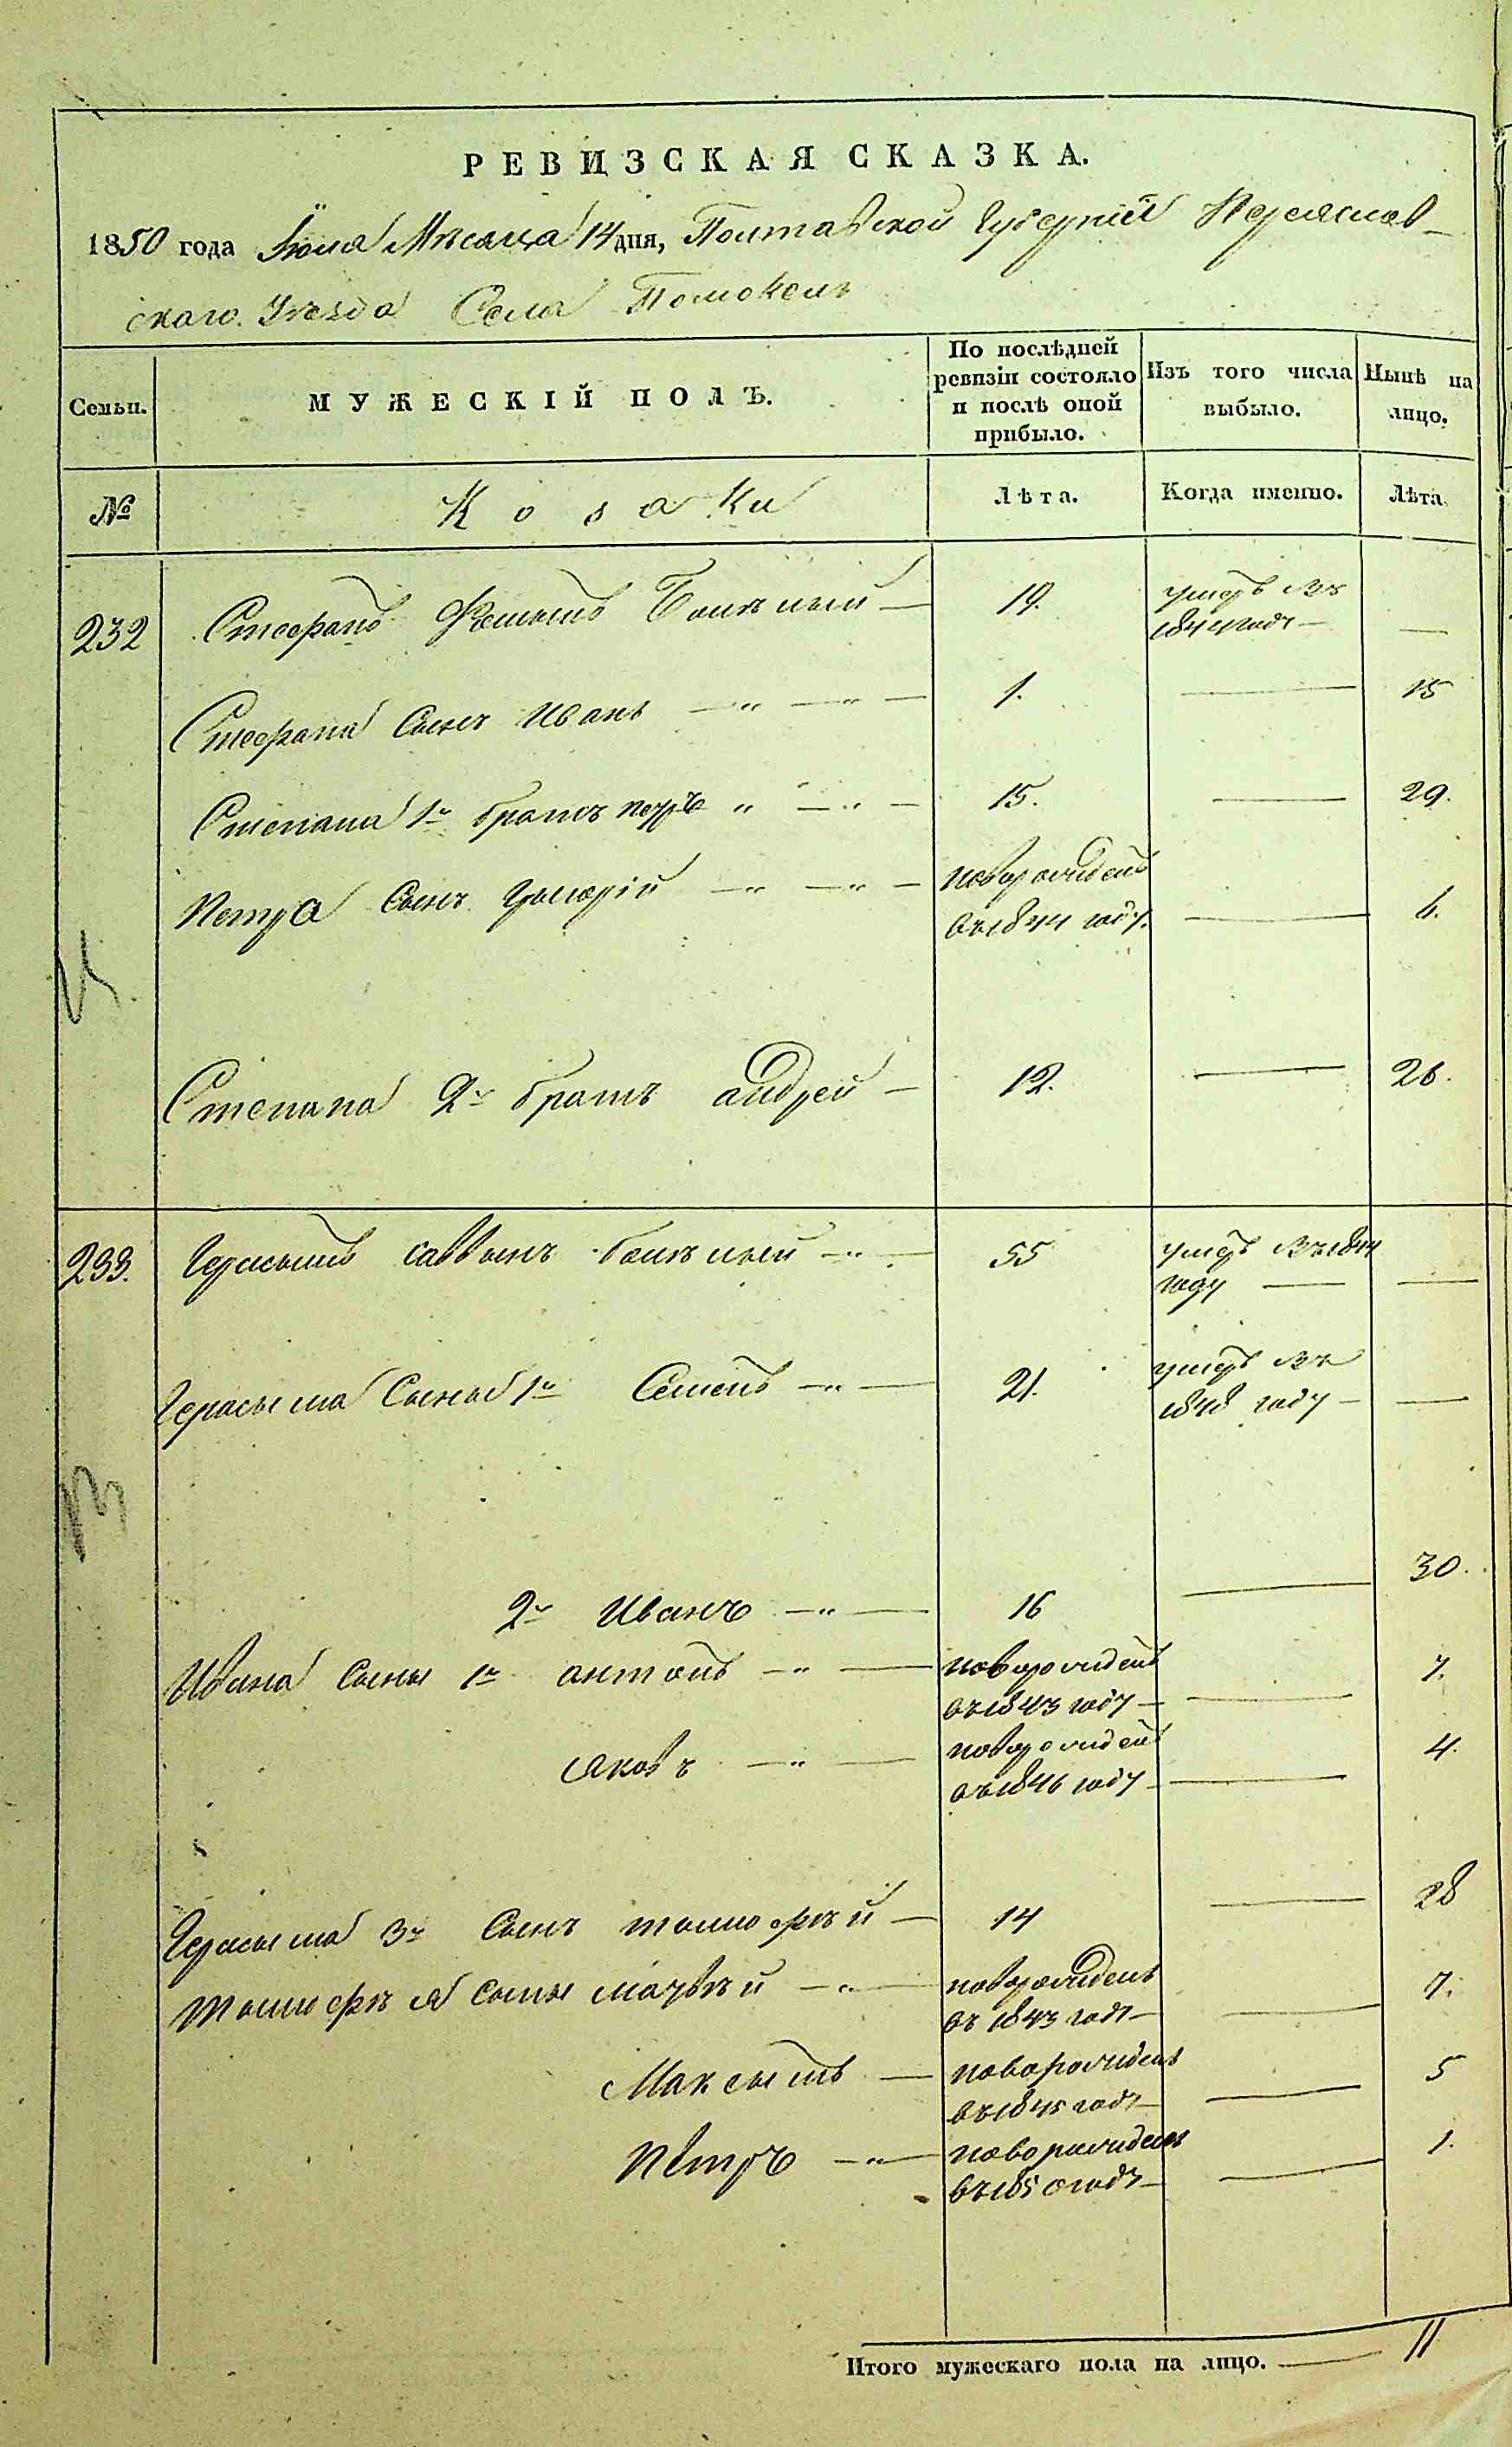 РЕВИЗСКАЯ СКАЗКА.
1850 года Іюля Мѣсяца 14 дня, Полтавской Губерніи Переяслав-
скаго Уѣзда Села Помокель
Семьи.
МУЖЕСКІЙ ПОЛЪ.
По послѣдней ревизіи состояло и послѣ оной прибыло.
Изъ того числа выбыло.
Нынѣ на лицо.
№
Козаки
Лѣта.
Когда именно.
Лѣта.
232 Стефанъ Фоминъ 19. умеръ въ
1844 году — —
Стефана Сынъ Иванъ 1. — 15
Степана 1й братъ петръ 15. — 29.
Петра Сынъ Григорій новорожденъ
въ 1844 году. — 6.
Степана 2й братъ андрей — 12. — 26.
233. Герасымъ саввынъ 55 умеръ въ 1844
году — —
Герасыма Сыны 1й Семенъ 21. умеръ въ
1848 году — —
2й Иванъ 16 — 30.
Ивана Сыны 1й антонъ новорожденъ
въ 1843 году — 7.
Яковъ новорожденъ
въ 1846 году — 4.
Герасыма 3й Сынъ тимофѣй — 14 — 28
тимофѣя Сыны матвѣй новорожденъ
въ 1843 году — 7.
Максымъ — новорожденъ
въ 1845 году — 5
Петръ новорожденъ
въ 1850 году — 1.
Итого мужескаго пола на лицо. — 11